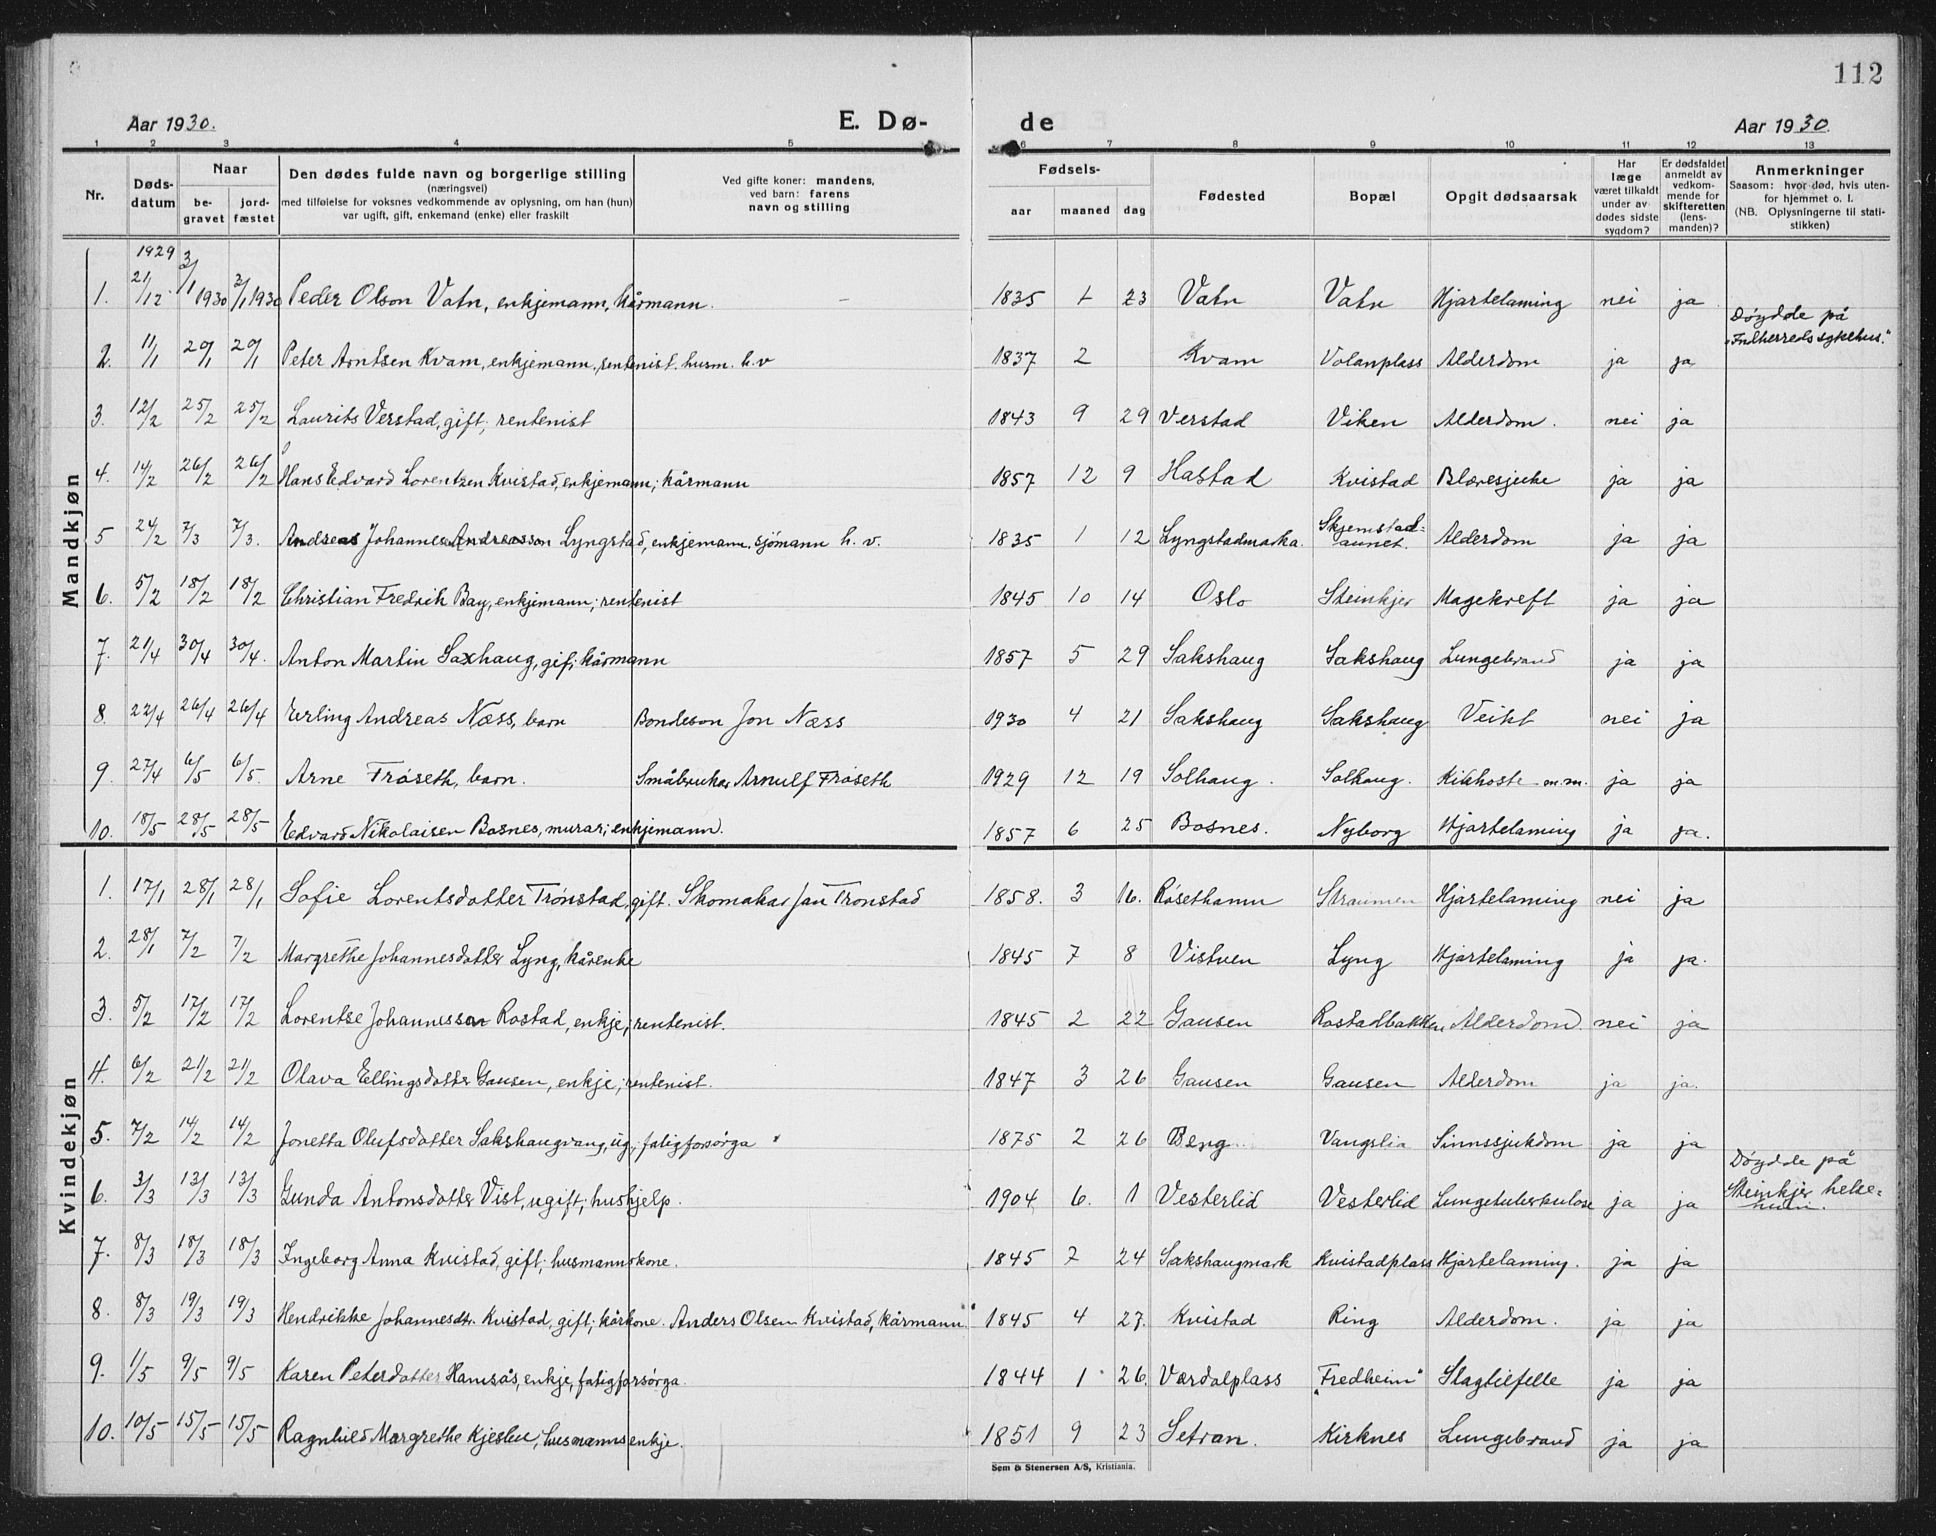 112
Aar 1930.
E. Dø-
de
Aar 1930.
1 2 3 4 5 6 7 8 9 10 11 12 13
Nr.
Døds-
datum
Naar
be-
gravet
jord-
fæstet
Den dødes fulde navn og borgerlige stilling
(næringsvei)
med tilføielse for voksnes vedkommende av oplysning, om han (hun)
var ugift, gift, enkemand (enke) eller fraskilt
Ved gifte koner: mandens,
ved barn: farens
navn og stilling
Fødsels-
aar maaned dag
Fødested
Bopæl
Opgit dødsaarsak
Har
læge
været tilkaldt
under av-
dødes sidste
sygdom?
Er dødsfaldet
anmeldt av
vedkom-
mende for
skifteretten
(lens-
manden)?
Anmerkninger
Saasom: hvor død, hvis uten-
for hjemmet o. l.
(NB. Oplysningerne til stati-
stikken)
Mandkjøn
1929
1. 21/12 3/1 1930 3/1 1930 Peder Olson Vatn, enkjemann, kårmann. – 1835 1 23 Vatn Vatn Hjartelaming nei ja
2. 11/1 20/1 20/1 Peter Arntsen Kvam, enkjemann, rentenist. husm. h. v 1837 2 Kvam Volanplass Alderdom ja ja Døydde på
"Innherreds sykehus."
3. 12/2 25/2 25/2 Laurits Verstad, gift; rentenist 1843 9 29 Verstad Viken Alderdom. nei ja
4. 14/2 26/2 26/2 Hans Edvard Lorentzen Kvistad, enkjemann; kårmann 1857 12 9 Hastad Kvistad Blæresjuke ja ja
5 24/2 7/3 7/3. Andreas Johannes Andreasson Lyngstad, enkjemann. sjømann h. v. 1835 1 12 Lyngstadmarka. Skjemstad-
aunet. Alderdom ja ja
6. 5/2 18/2 18/2 Christian Fredrik Bay, enkjemann; rentenist 1845 10 14 Oslo Steinkjer Magekreft ja ja
7. 21/4 30/4 30/4. Anton Martin Saxhaug, gift; kårmann 1857 5 29 Sakshaug Sakshaug Lungebrand ja ja
8. 22/4 26/4 26/4 Erling Andreas Næss, barn Bondeson Jon Næss 1930 4 21 Sakshaug Sakshaug Veikt nei ja
9. 27/4 6/5 6/5. Arne Frøseth, barn. Småbrukar Arnulf Frøseth 1929 12 19 Solhaug. Solhaug. Kikhoste m.m. ja ja
10. 18/5 28/5 28/5 Edvard Nikolaisen Bosnes, murar; enkjemann. 1857 6 25 Bosnes. Nyborg Hjartelaming ja ja.
Kvindekjøn
1. 17/1 28/1 28/1 Sofie Lorentsdotter Trønstad, gift. Skomakar Jan Tronstad 1858. 3 16. Røsethamn Straumen Hjartelaming nei ja
2. 28/1 7/2 7/2 Margrethe Johannesdotter Lyng, kårenke 1845 7 8 Vistven Lyng Hjartelaming ja ja.
3. 5/2 17/2 17/2 Lorentse Johannesson Rostad, enkje; rentenist. 1845 2 22 Gausen Rostadbakken Alderdom nei ja
4. 6/2 21/2 21/2 Olava Ellingsdotter Gausen, enkje; rentenist. 1847 3 26 Gausen Gausen Alderdom ja ja.
5. 7/2 14/2 14/2 Jonetta Olufsdotter Sakshaugvang, ug; fatigforsørga 1875 2 26 Berg Vangslia Sinnssjukdom ja ja
6. 3/3 13/3 13/3 Gunda Antonsdotter Vist, ugift; hushjelp. 1904 6. 1 Vesterlid Vesterlid Lungetuberkulose ja ja Døydde på
Steinkjer helse-
heim.
7. 8/3 18/3 18/3 Ingeborg Anna Kvistad, gift; husmannskone. 1845 7 24 Sakshaugmark Kvistadplass Hjartelaming. ja ja
8. 8/3 19/3 19/3 Hendrikke Johannesdtr. Kvistad, gift; kårkone. Anders Olsen Kvistad, kårmann 1845 4 27. Kvistad Ring Alderdom. ja ja
9. 1/5 9/5 9/5 Karen Petersdotter Hamsås, enkje, fatigforsørga. 1844 1 26. Værdalplass "Fredheim" Slagtilfelle ja ja
10. 10/5 15/5 15/5 Ragnhild Margrethe Kjeslen; husmannsenkje. 1851 9 23 Setran. Kirknes Lungebrand ja ja
Sem & Stenersen A/S, Kristiania.